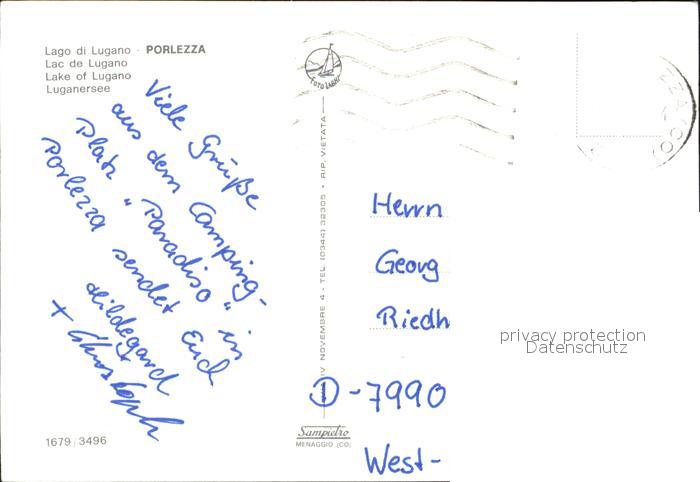 Lago di Lugano - PORLEZZA
Lac de Lugano
Lake of Lugano
Luganersee
Viele Grüße
aus dem Camping-
Platz "Paradiso" in
Porlezza sendet Euch
Hildegard
+ Christoph
1679/3496
FOTO LAGHI
IV NOVEMBRE 4 - TEL. (0344) 32305 - RIP. VIETATA
Sampietro
MENAGGIO (CO)
Herrn
Georg
Riedh
D-7990
West-
privacy protection
Datenschutz